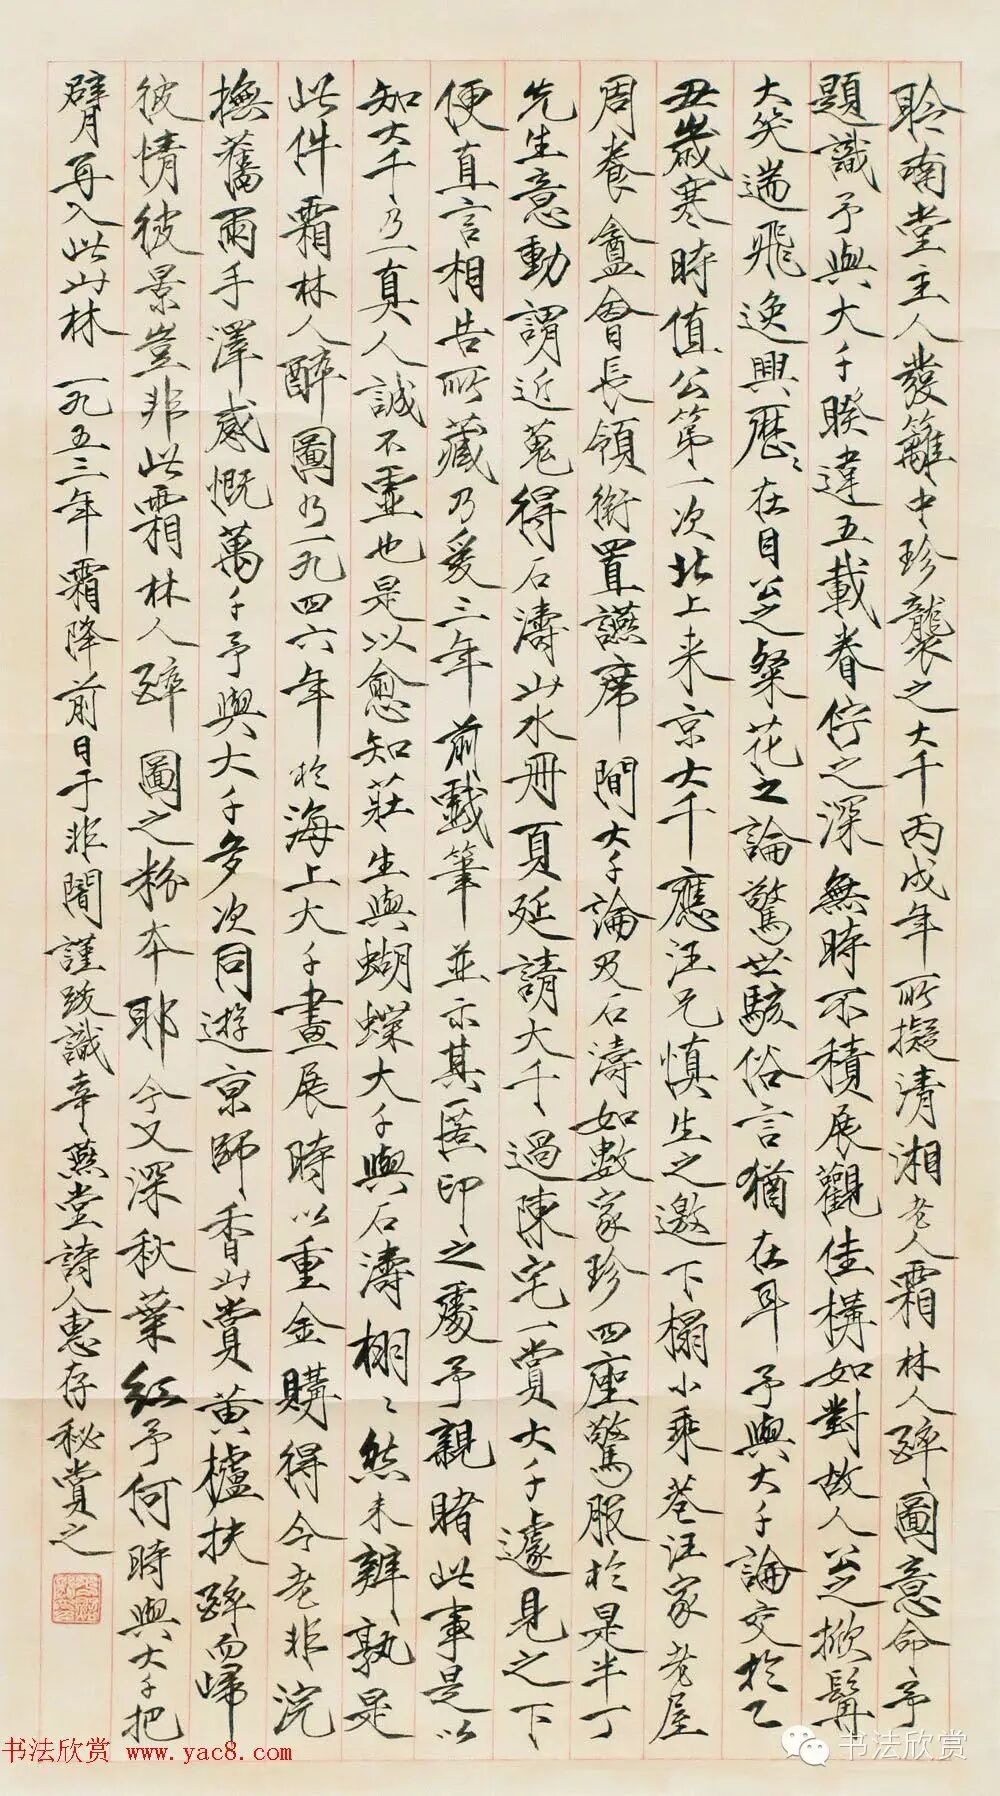 聆喃堂主人發籬中珍襲之大千丙戌年所擬清湘老人霜林人醉圖意命予
題識予與大千睽違五載眷佇之深無時不積展觀佳構如對故人公之掀髯
大笑遄飛逸興歷〻在目公之粲花之論驚世駭俗言猶在耳予與大千論交於乙
丑歲寒時值公第一次北上来京大千應汪兄慎生之邀下榻小乘巷汪家老屋
周養盦會長領銜置讌席間大千論及石濤如數家珍四座驚服於是半丁
先生意動謂近蒐得石濤山水冊頁延請大千過陳宅一賞大千遽見之下
便直言相告所藏乃爰三年前戲筆並示其匿印之處予親睹此事是以
知大千乃一真人誠不虛也是以愈知莊生與蝴蝶大千與石濤栩〻然未辨孰是
此件霜林人醉圖乃一九四六年於海上大千畫展時以重金購得今老非浣
撫舊雨手澤感慨萬千予與大千多次同遊京師香山賞黃櫨扶醉而歸
彼情彼景豈非此霜林人醉圖之粉本耶今又深秋葉紅予何時與大千把
臂再入此山林 一九五三年霜降前日于非闇謹跋識幸燕堂詩人惠存秘賞之
书法欣赏 www.yac8.com
书法欣赏